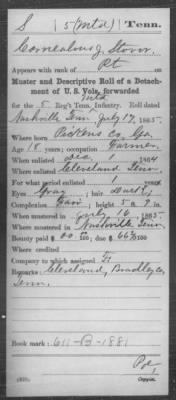 S | 5 (Mtd) | Tenn.
Cornealous J. Stover
Appears with rank of Pvt on
Muster and Descriptive Roll of a Detach-
ment of U. S. Vols. forwarded
for the 5 Reg't Tenn. Infantry. Roll dated
Nashville Tenn July 17, 1865.
Where born Pickens Co. Ga.
Age 18 years; occupation Farmer
When enlisted Dec 1, 1864
Where enlisted Cleveland, Tenn.
For what period enlisted 1 years.
Eyes Gray; hair Dark
Complexion Fair; height 5 ft. 9 in.
When mustered in July 16, 1865.
Where mustered in Nashville Tenn
Bounty paid $ 00 00/100; due $ 66 /100
Where credited
Company to which assigned F
Remarks: Cleveland, Bradley Co.
Tenn.
Book mark: 611-B-1881
Copyist.